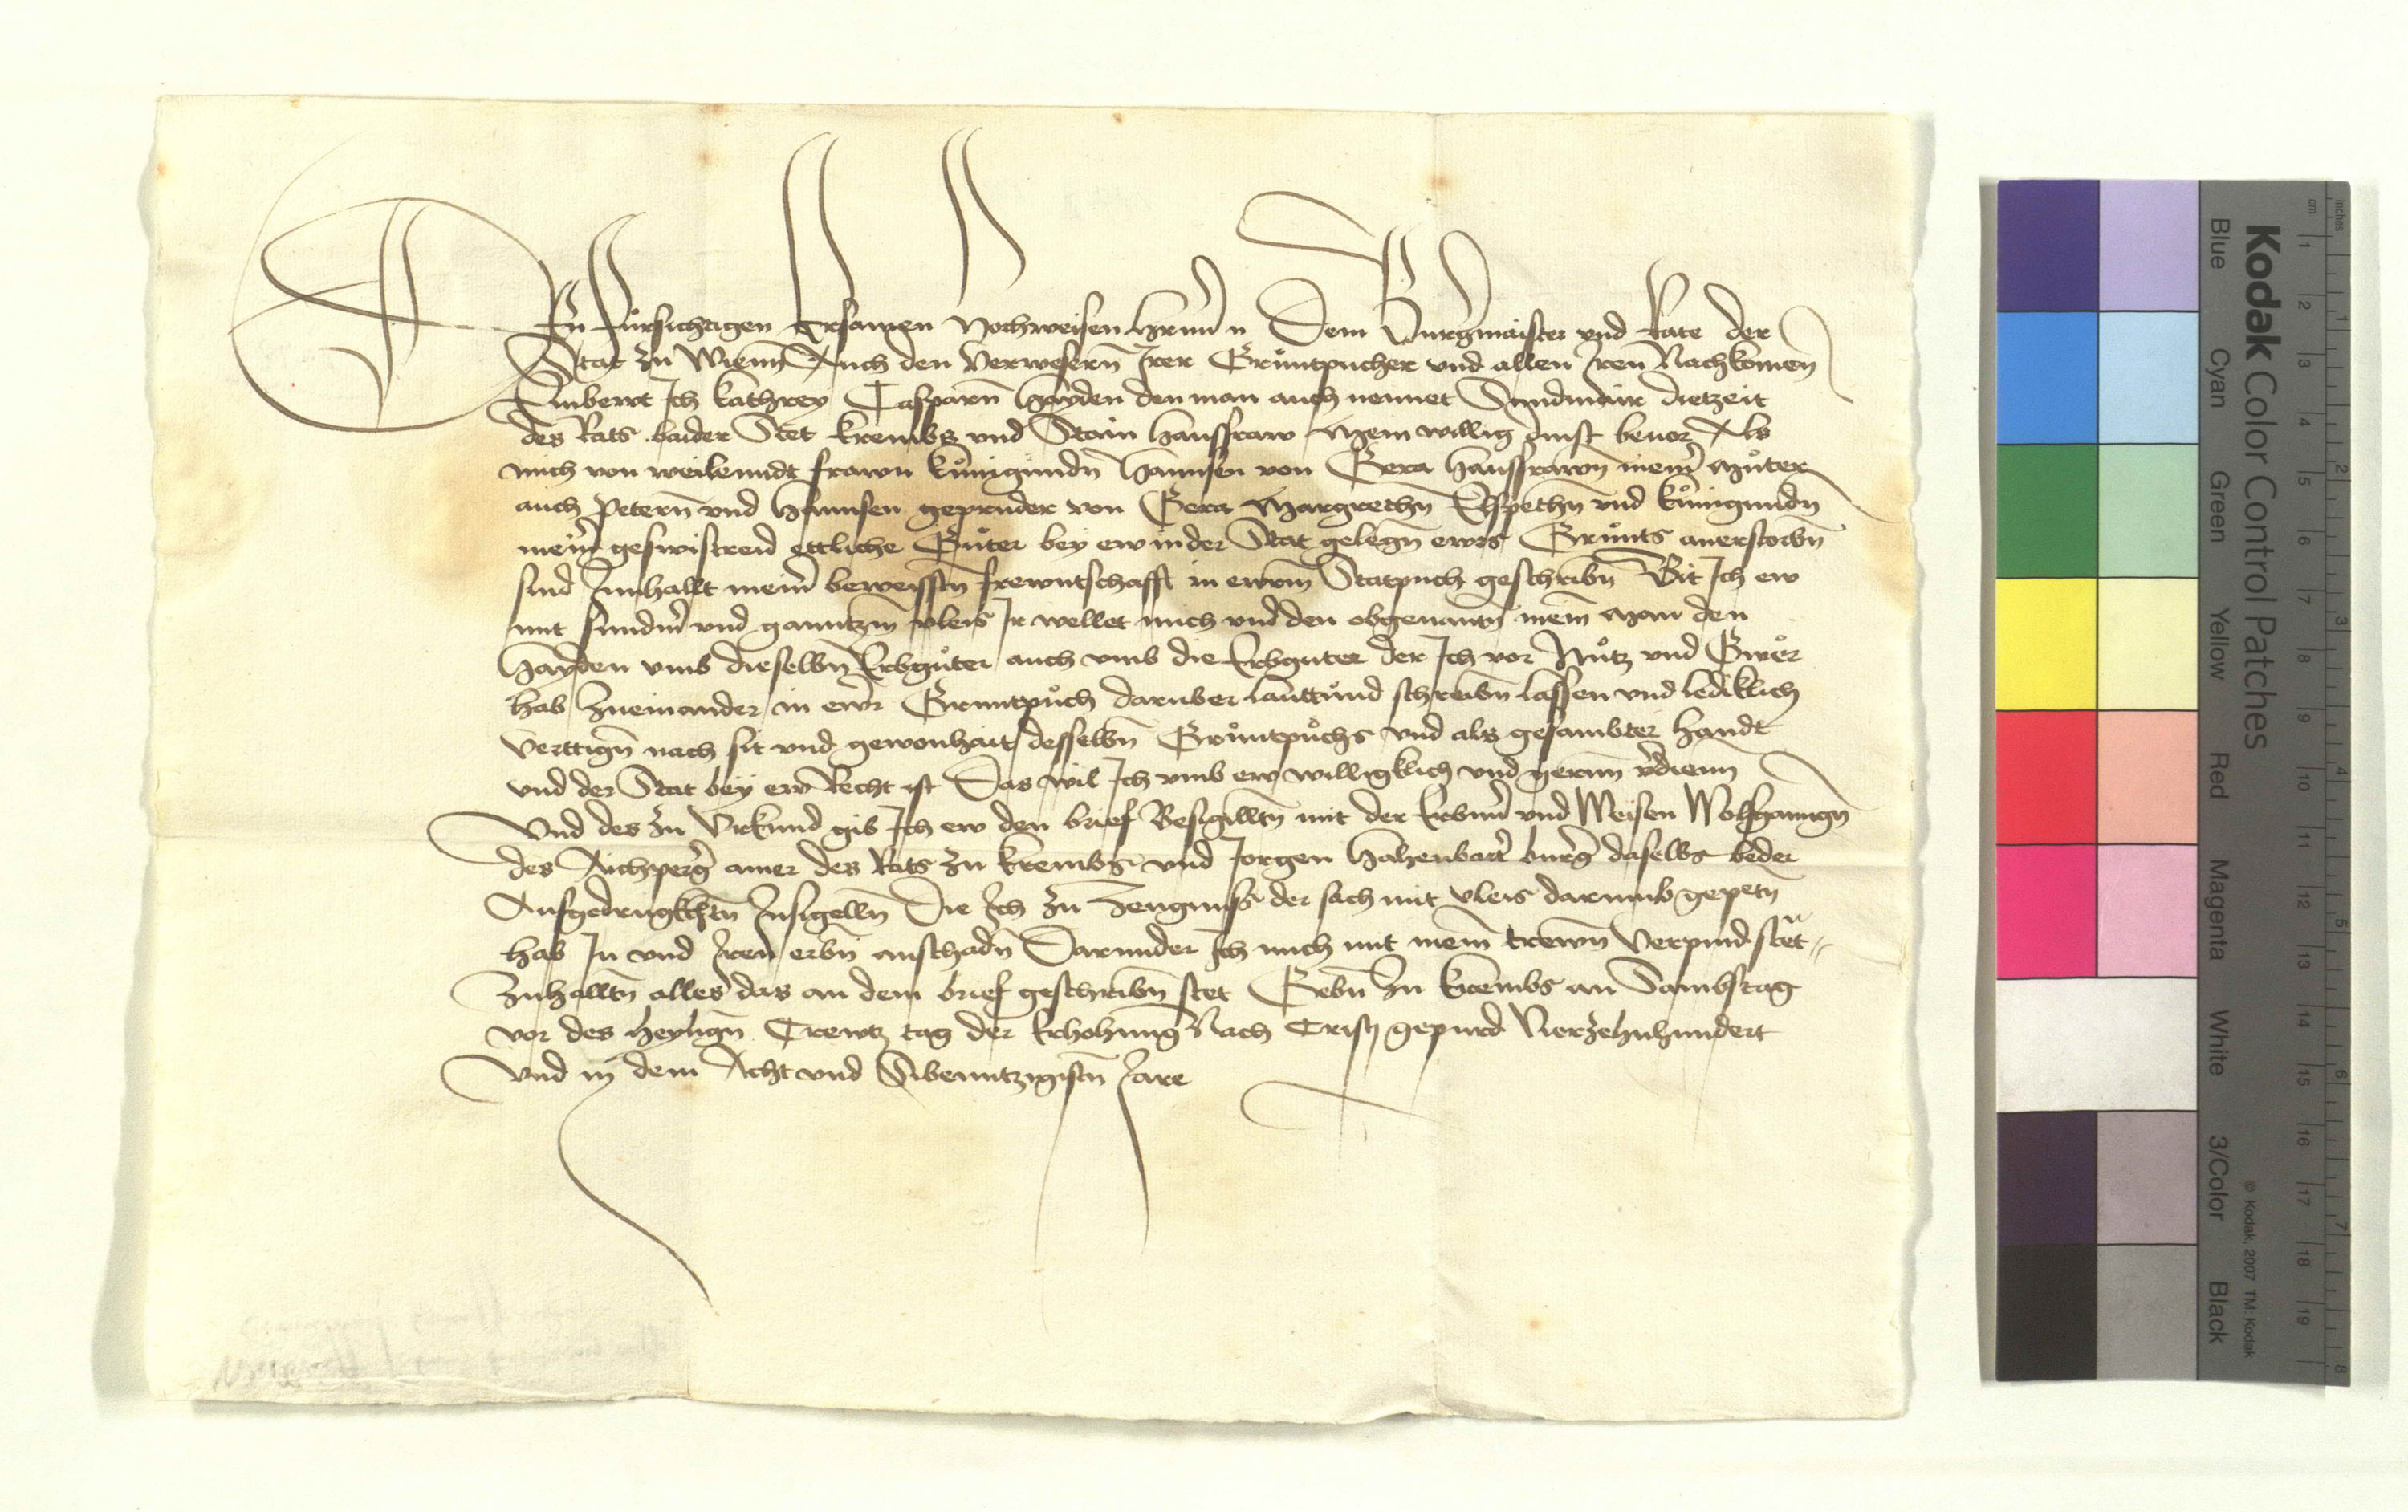 Den Fürsichtigen Ersamen Hochweisen Herrnn Dem Burgmaister vnd Rate der
Stat zu Wienn Auch den Verwesern Irer Grůntpucher vnd allen Iren Nachkomen
Embewt Ich Kathrey Casparn Hayden den man auch nennet Sundmair dietzeit
des Rats baider Stet Krembs vnd Stain Hausfraw Mein willig dinst beuor Als
mich von weilenndt frawn Kůnigundn Hannsen von Gera Hausfrawn meinr Můter
auch Petern vnd Hannsen geprüder von Gera Margrethn Elspethn vnd Kůnigundn
meinr geswistreid ettliche Gůter bey ew in der Stat gelegn ewrs Grůnts anerstorbn
sind Innhallt meinr beweisstn frewntschafft in ewrm Statpuch geschribn Bit Ich ew
mit sundrm vnd ganntzm vleis Ir wellet mich vnd den obgenantn mein Man den
Hayden vmb dieselbn Erbgůter auch vmb die Erbguter der Ich vor Nůtz vnd Gwer
hab zueinander in ewr Gruntpůch daruber lauttund schreibn lassen vnd lediklich
verttign nach sit vnd gewonhait desselbn Grůntpůchs vnd als gesambter Handt
vnd der Stat bey ew Recht ist Das wil Ich vmb ew willigklich vnd gernn vdienn
Vnd des zu Vrkund gib Ich ew den brief Besigilltn mit der Erbernn vnd Weisen Wolfganngn
des Aichperg ainer des Rats zu Krembs vnd Jorgen Hahenbart burg daselbs beder
Aufgedrugkhtn Insigelln Die Ich zu Zeugnuss der sach mit vleis darumb gepetn
hab In vnd Iren erbn anschadn Darunder Ich mich mit mein trewn Verpind stet
Zuhalltn alles das an dem brief geschribn stet Gebn zu Krembs an Sambstag
vor des heylign Crewtz tag der Erhohung Nach Cristj gepurd Vierzehnhundert
Vnd in dem Acht vnd Sibenntzigistn Jare
Kodak Color Control Patches
Blue Cyan Green Yellow Red Magenta White 3/Color Black
© Kodak, 2007 TM: Kodak
inches 1 2 3 4 5 6 7 8
cm 1 2 3 4 5 6 7 8 9 10 11 12 13 14 15 16 17 18 19